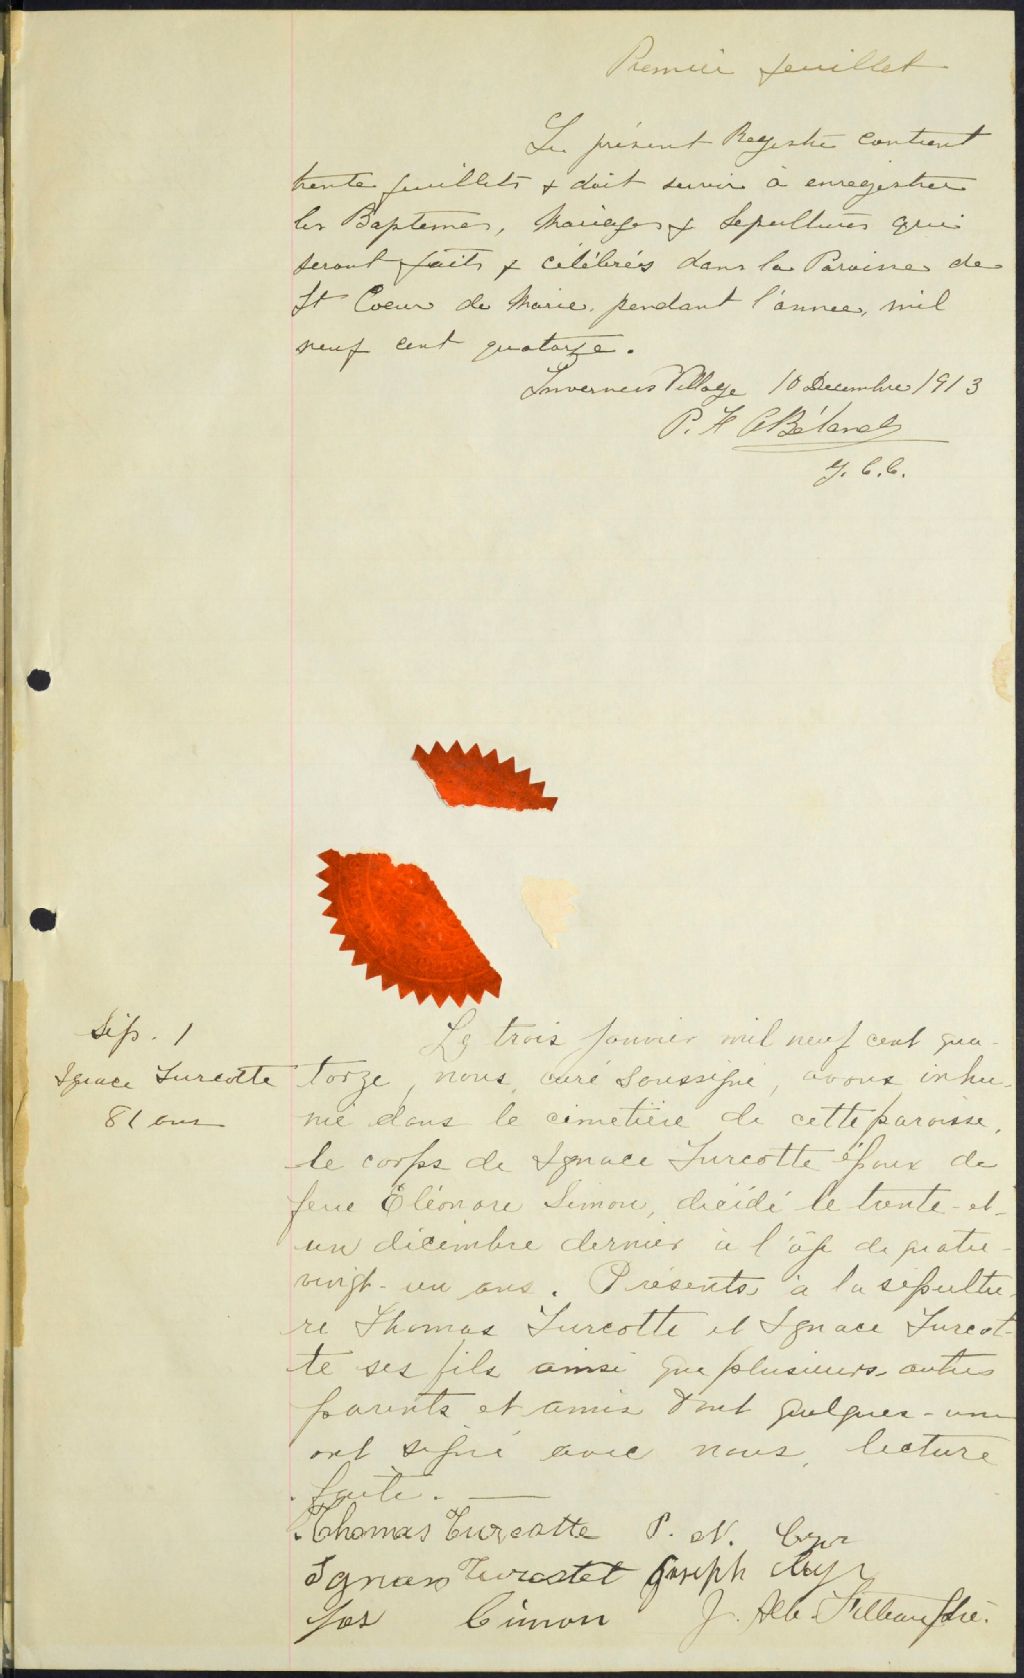 Premier feuillet
Le présent Registre contient
trente feuillets & doit servir à enregistrer
les Baptemes, Mariages & Sepultures qui
seront faits & célébrés dans la Paroisse de
St Coeur de Marie, pendant l'annee, mil
neuf cent quatorze.
Inverness Village 10 Decembre 1913
P. H
Le trois janvier mil neuf cent qua-
Sép. 1
Ignace Turcotte
81 ans
torze, nous, curé soussigné, avons inhu-
mé dans le cimetière de cette paroisse,
le corps de Ignace Turcotte époux de
feue Éléonore Simon, décédé le trente-et-
un décembre dernier à l'âge de quatre-
vingt-un ans. Présents à la sépultu-
re Thomas Turcotte et Ignace Turcot-
te ses fils ainsi que plusieurs autres
parents et amis dont quelques-uns
ont signé avec nous, lecture
faite.
Thomas Turcotte P. N. Cyr
Joseph Cyr
Jos Cimon J. Alb.